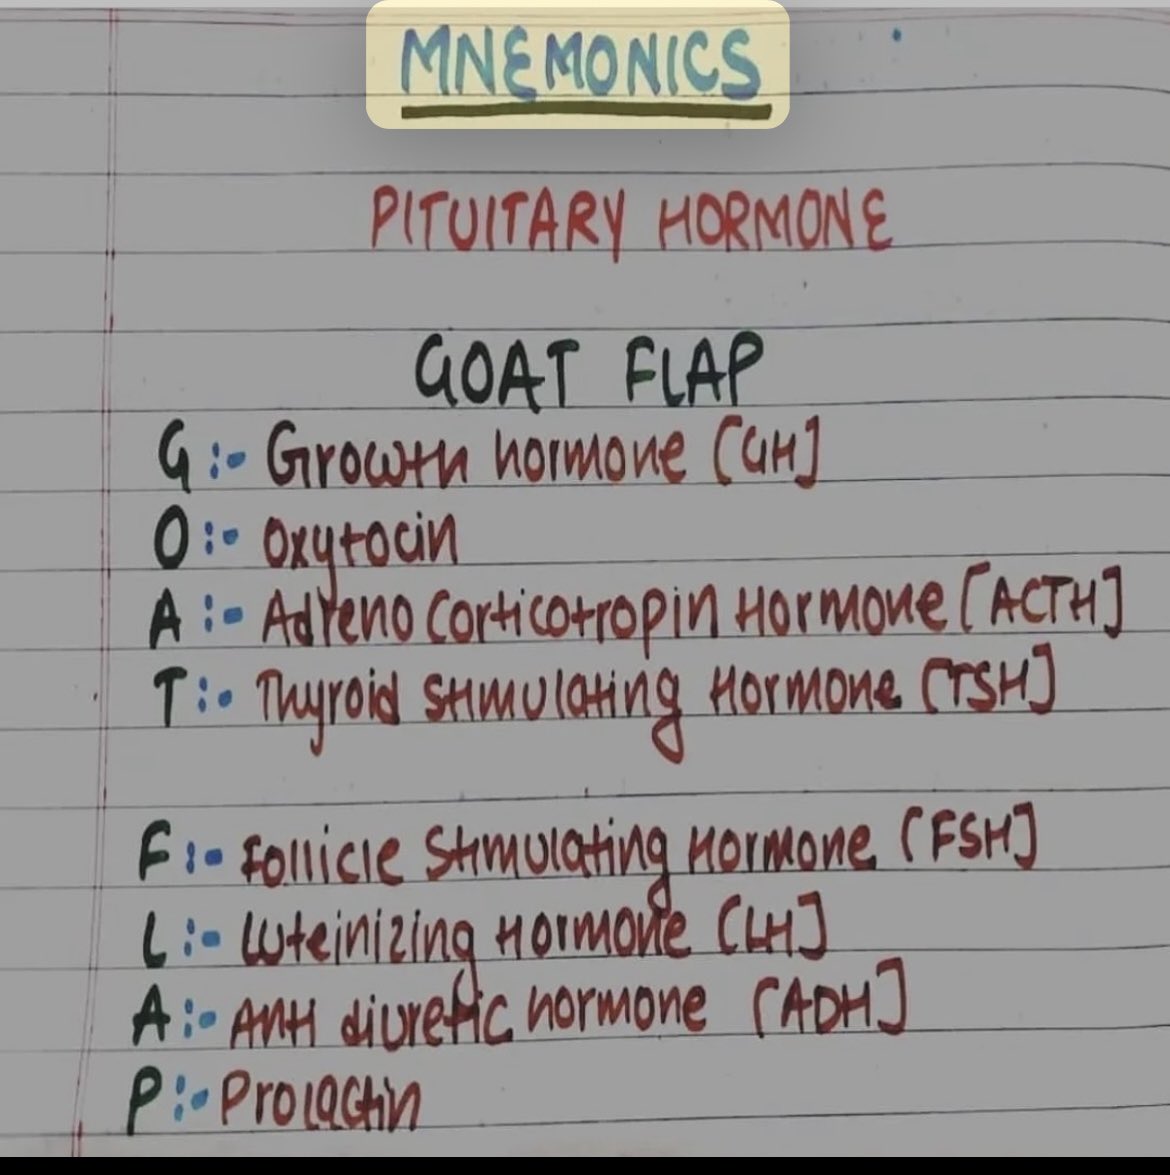 MNEMONICS
PITUITARY HORMONE
GOAT FLAP
G :- Growth hormone [GH]
O :- Oxytocin
A :- Adreno corticotropin Hormone [ACTH]
T :- Thyroid stimulating Hormone [TSH]
F :- Follicle stimulating Hormone [FSH]
L :- Luteinizing Hormone [LH]
A :- Anti diuretic hormone [ADH]
P :- Prolactin